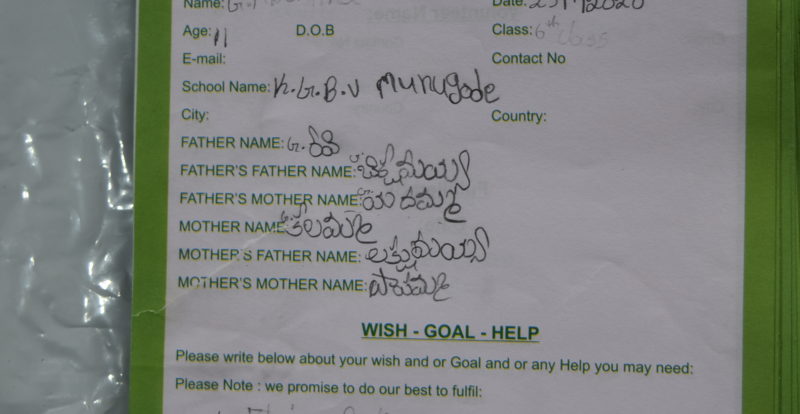 Name: G.
Date: 25/1/2020
Age: 11 D.O.B Class: 6th class
E-mail: Contact No
School Name: K.G.B.V Munugode
City: Country:
FATHER NAME: G. రవి
FATHER'S FATHER NAME:
FATHER'S MOTHER NAME:
MOTHER NAME
MOTHER'S FATHER NAME: లక్ష్మయ్య
MOTHER'S MOTHER NAME:
WISH - GOAL - HELP
Please write below about your wish and or Goal and or any Help you may need:
Please Note : we promise to do our best to fulfil: